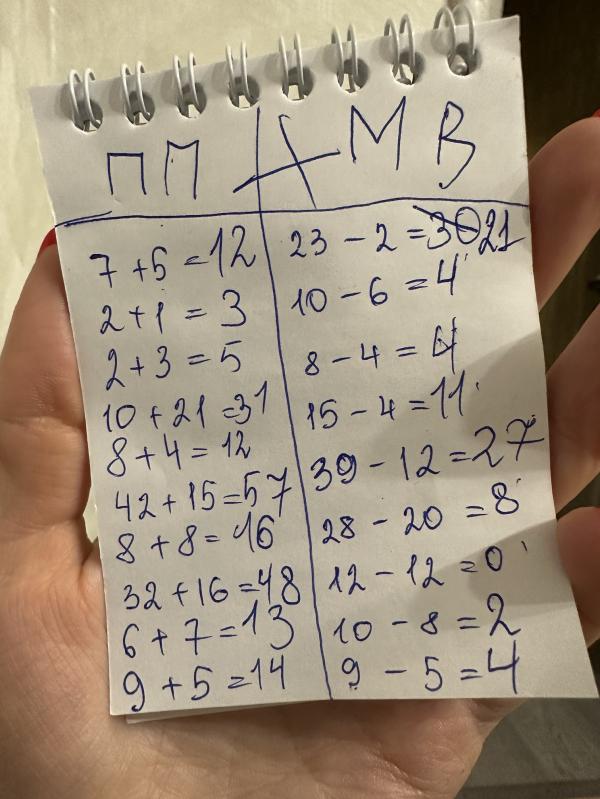 ПП А М В
7 + 5 = 12
2 + 1 = 3
2 + 3 = 5
10 + 21 = 31
8 + 4 = 12
42 + 15 = 57
8 + 8 = 16
32 + 16 = 48
6 + 7 = 13
9 + 5 = 14
23 - 2 = 30 21
10 - 6 = 4
8 - 4 = 4
15 - 4 = 11
39 - 12 = 27
28 - 20 = 8
12 - 12 = 0
10 - 8 = 2
9 - 5 = 4